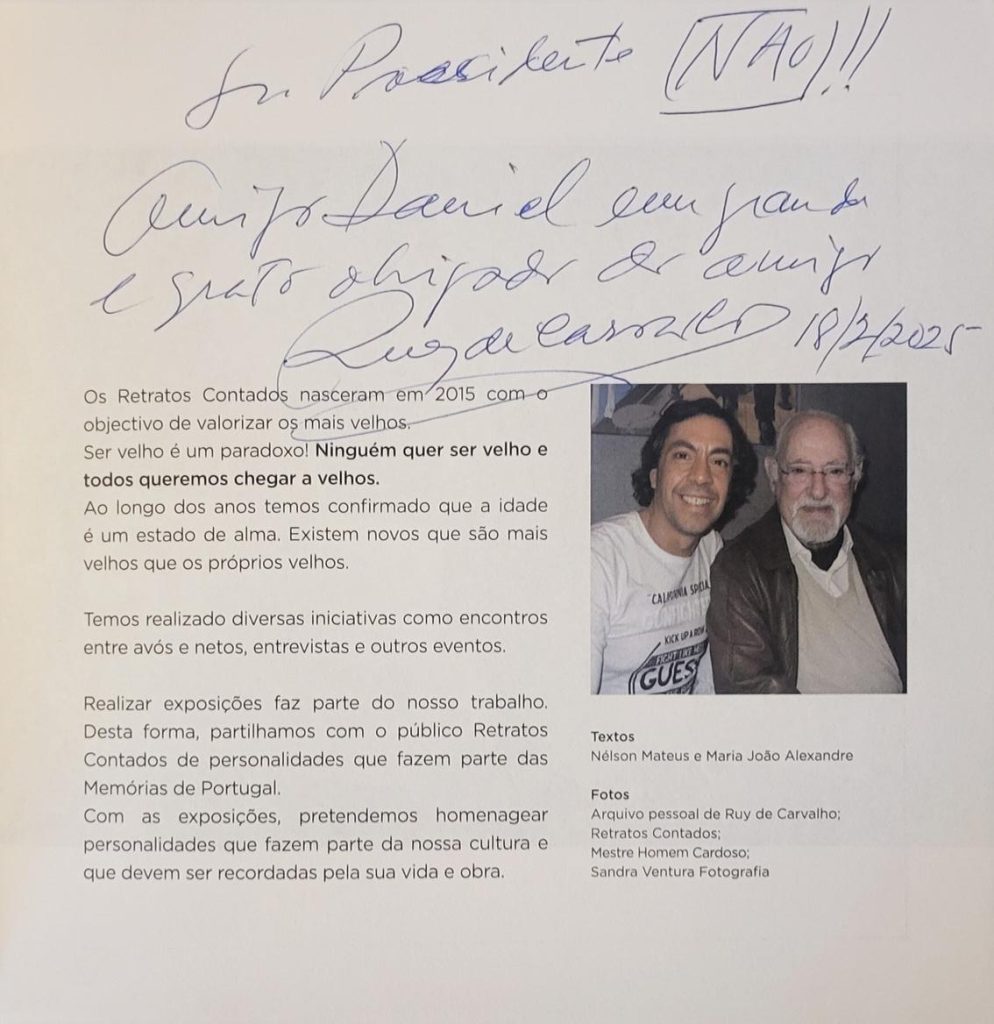 Sr. Presidente (NÃO)!!
Amigo Daniel um grande
e grato obrigado do amigo
Ruy de Carvalho 18/2/2025
Os Retratos Contados nasceram em 2015 com o
objectivo de valorizar os mais velhos.
Ser velho é um paradoxo! Ninguém quer ser velho e
todos queremos chegar a velhos.
Ao longo dos anos temos confirmado que a idade
é um estado de alma. Existem novos que são mais
velhos que os próprios velhos.
Temos realizado diversas iniciativas como encontros
entre avós e netos, entrevistas e outros eventos.
Realizar exposições faz parte do nosso trabalho.
Desta forma, partilhamos com o público Retratos
Contados de personalidades que fazem parte das
Memórias de Portugal.
Com as exposições, pretendemos homenagear
personalidades que fazem parte da nossa cultura e
que devem ser recordadas pela sua vida e obra.
KICK UP A ROW
FIGHT LIKE
GUESS
Textos
Nélson Mateus e Maria João Alexandre
Fotos
Arquivo pessoal de Ruy de Carvalho;
Retratos Contados;
Mestre Homem Cardoso;
Sandra Ventura Fotografia